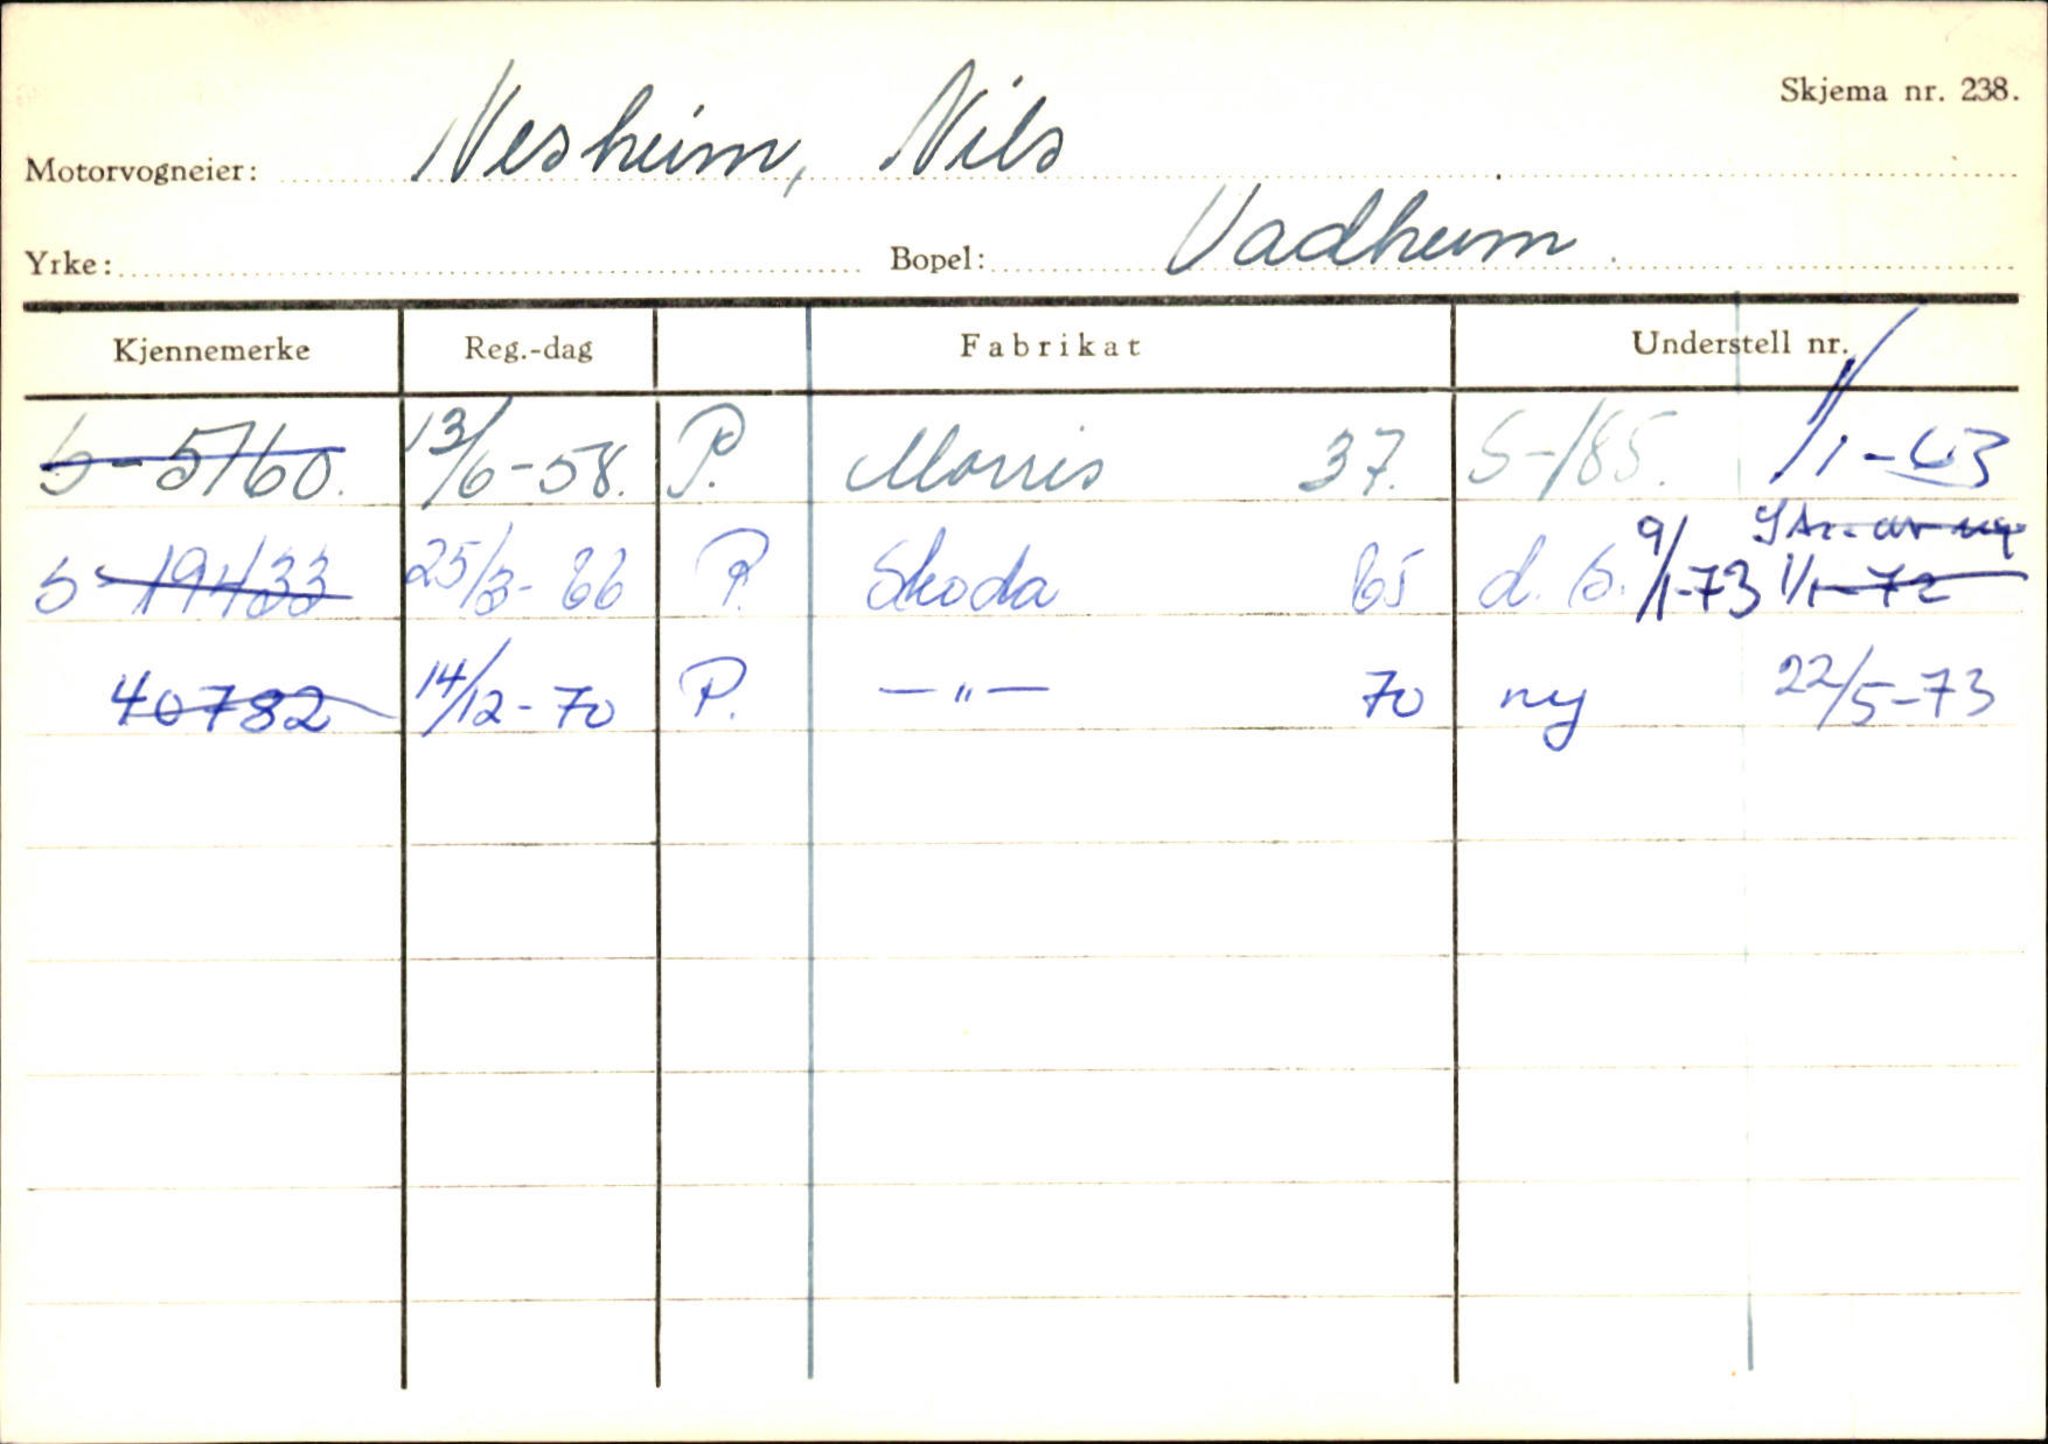 Skjema nr. 238.
Motorvogneier: Nesheim, Nils
Yrke: Bopel: Vadheim
Kjennemerke Reg.-dag Fabrikat Understell nr.
S-5760. 13/6-58. P. Morris 37. S-185. 1/1-63
S-19433 25/3-66 P. Skoda 65 d.s. 9/1-73 1/1-72
40782 14/12-70 P. —"— 70 ny 22/5-73